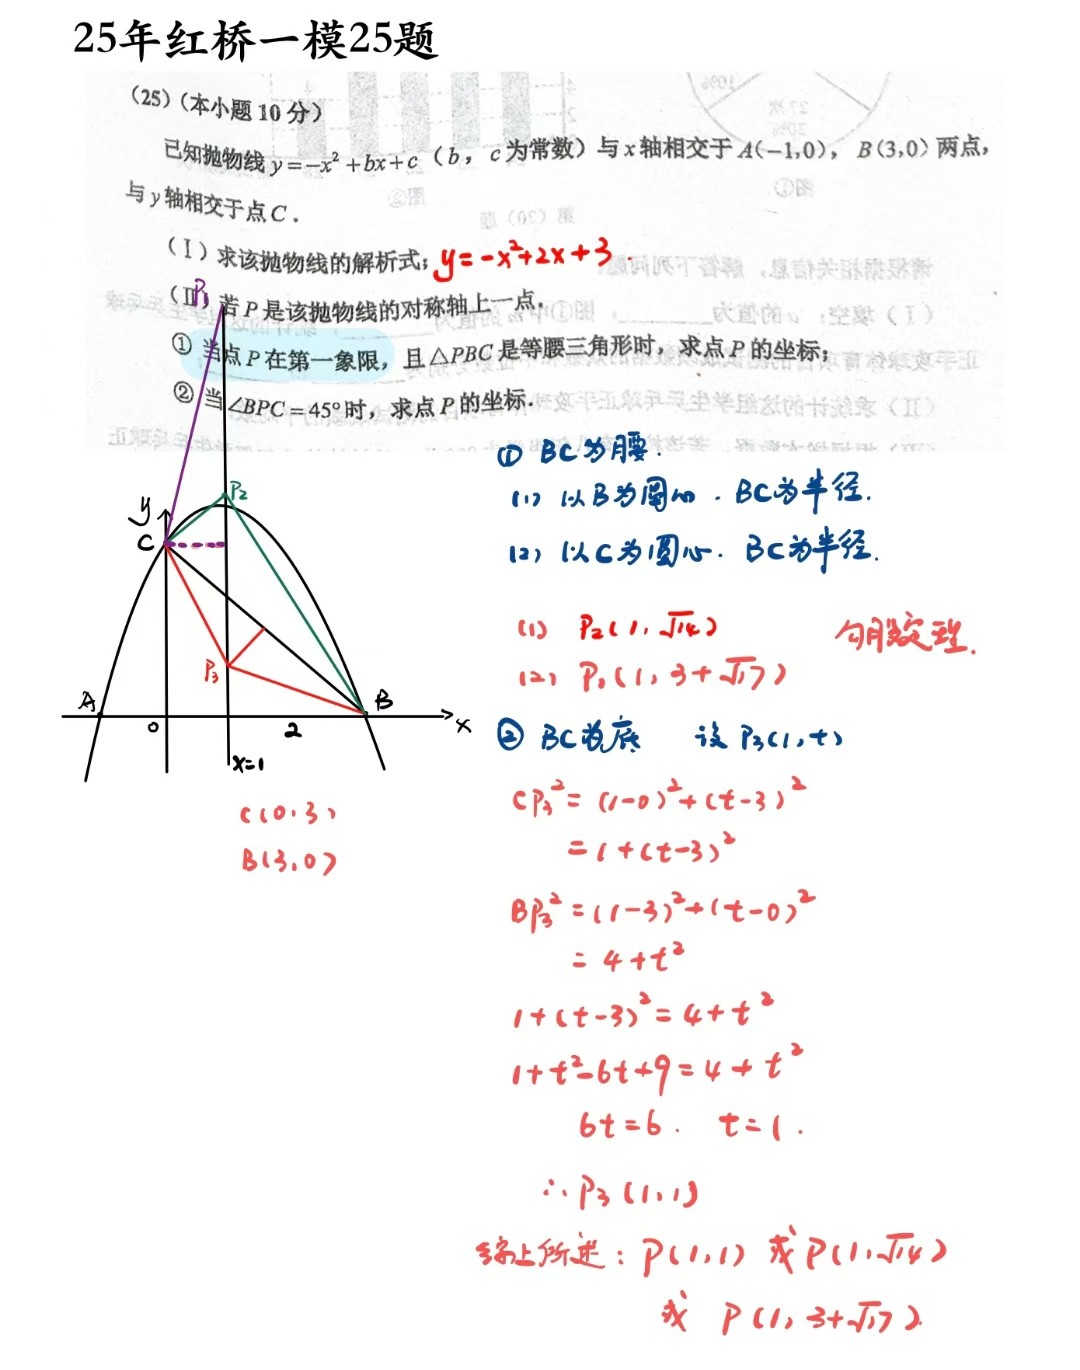 25年红桥一模25题
(25)(本小题10分)
已知抛物线 y=-x²+bx+c(b,c为常数)与x轴相交于A(-1,0),B(3,0)两点,
与y轴相交于点C.
(Ⅰ)求该抛物线的解析式; y=-x²+2x+3
(Ⅱ)若P是该抛物线的对称轴上一点.
P₁
①当点P在第一象限,且△PBC是等腰三角形时,求点P的坐标;
②当∠BPC=45°时,求点P的坐标.
① BC为腰.
(1) 以B为圆心.BC为半径.
(2) 以C为圆心.BC为半径.
y
C
P₂
P₃
A
B
0
2
x
x=1
C(0.3)
B(3.0)
(1) P₂(1,√14) 勾股定理.
(2) P₁(1,3+√17)
② BC为底 设P₃(1,t)
CP₃²=(1-0)²+(t-3)²
=1+(t-3)²
BP₃²=(1-3)²+(t-0)²
=4+t²
1+(t-3)²=4+t²
1+t²-6t+9=4+t²
6t=6. t=1.
∴P₃(1,1)
综上所述:P(1,1)或P(1,√14)
或 P(1,3+√17).